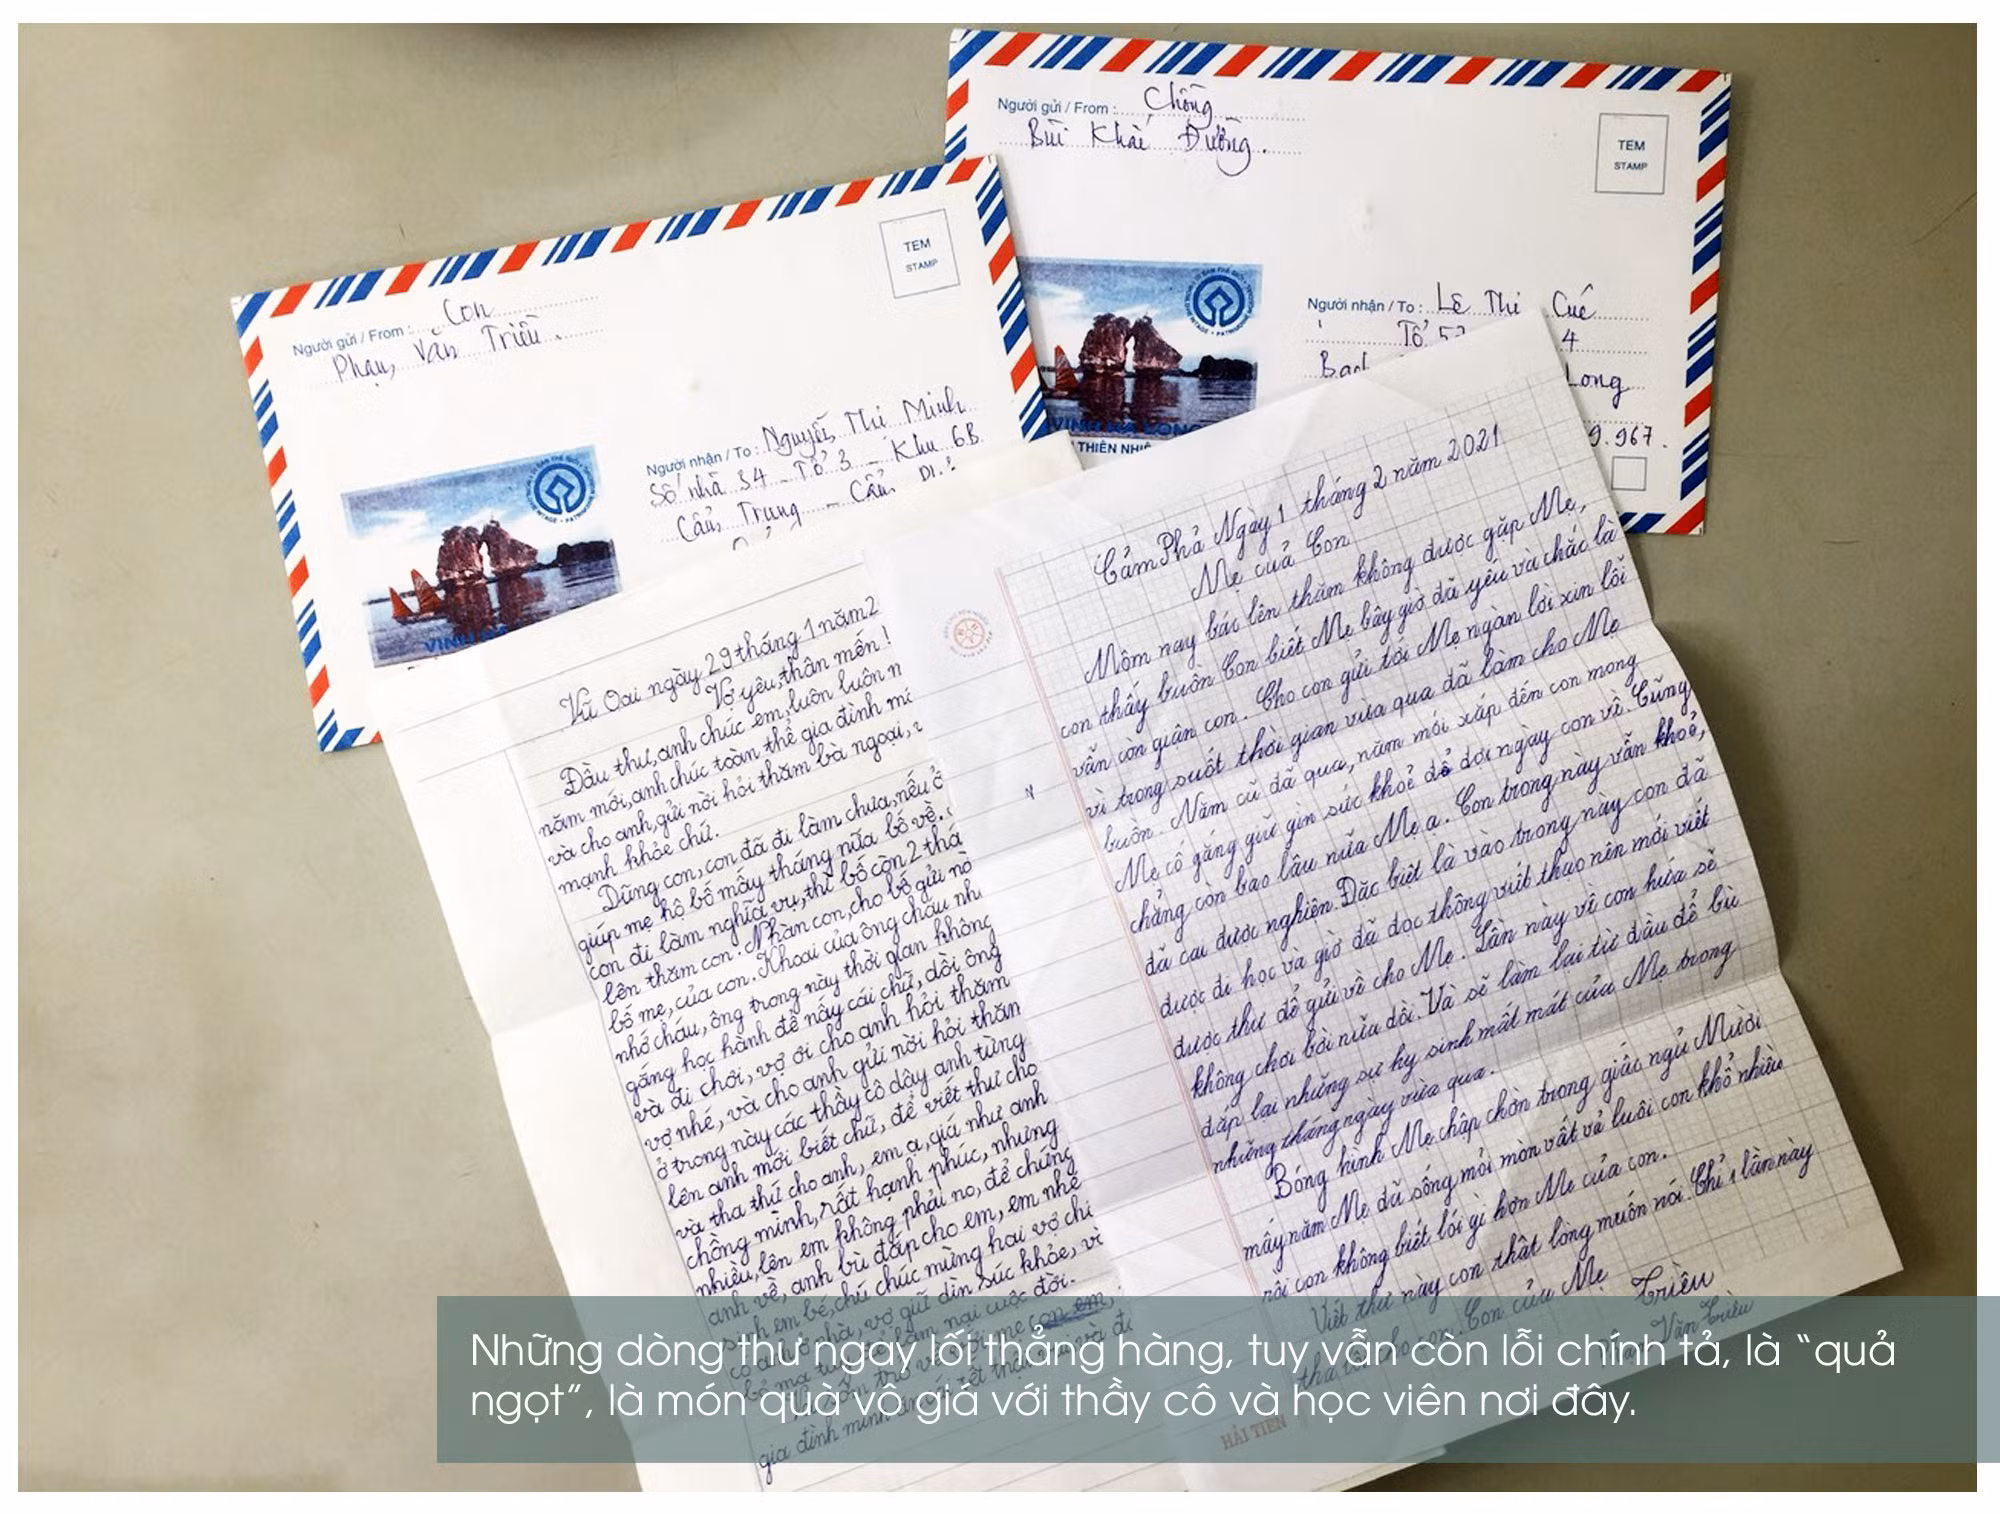 Người gửi / From : Chồng
Bùi Khải Đường.
TEM
STAMP
Người nhận / To : Lê Thị Cúc
Tổ 4
Long
9.967.
VINH HA LONG
THIÊN NHIÊ
Người gửi / From : Con
Phạm Văn Triều.
TEM
STAMP
Người nhận / To : Nguyễn Thị Minh
Số nhà 34 - Tổ 3 - Khu 6B
Cẩm Trung - Cẩm
VINH HẠ
Vũ Oai ngày 29 tháng 1 năm 2
Vợ yêu, thân mến!
Đầu thư, anh chúc em, luôn luôn m
năm mới, anh chúc toàn thể gia đình mạ
và cho anh, gửi nời hỏi thăm bà ngoại,
mạnh khỏe chứ.
Dũng con, con đã đi làm chưa, nếu ở
giúp mẹ hộ bố mấy tháng nữa bố về.
con đi làm nghĩa vụ, thì bố còn 2 thá
lên thăm con. Nhàn con, cho bố gửi nờ
bố mẹ, của con. Khoai của ông cháu nh
nhớ cháu, ông trong này thời gian không
gắng học hành để nấy cái chữ, dồi ông
và đi chơi, vợ ơi cho anh hỏi thăm
vợ nhé, và cho anh gửi nời hỏi thăm
ở trong này các thầy cô dây anh từng
lên anh mới biết chữ, để viết thư cho
và tha thứ cho anh, em ạ, giá như anh
chồng mình, rất hạnh phúc, nhưng
nhiều, lên em không phải no, để chúng
anh về, anh bù đắp cho em, em nhé
sinh em bé, chú chúc mừng hai vợ chi
có anh ở nhà, vợ giữ dìn sức khỏe, vì
làm nại cuộc đời.
gia đình mình
Cẩm Phả Ngày 1 tháng 2 năm 2021
Mẹ của Con
Môm nay bác lên thăm không được gặp Mẹ,
con thấy buồn Con biết Mẹ bây giờ đã yếu và chắc là
vẫn còn giận con. Cho con gửi tới Mẹ ngàn lời xin lỗi
vì trong suốt thời gian vừa qua đã làm cho Mẹ
buồn. Năm cũ đã qua, năm mới xắp đến con mong
Mẹ cố gắng giữ gìn sức khoẻ để đợi ngày con về. Cũng
chẳng còn bao lâu nữa Mẹ ạ. Con trong này vẫn khoẻ,
đã cai được nghiện. Đặc biệt là vào trong này con đã
được đi học và giờ đã đọc thông viết thạo nên mới viết
được thư để gửi về cho Mẹ. Lần này về con hứa sẽ
không chơi bời nữa dồi. Và sẽ làm lại từ đầu để bù
đắp lại những sự hy sinh mất mát của Mẹ trong
những tháng ngày vừa qua.
Bóng hình Mẹ chập chờn trong giấc ngủ Mười
mấy năm Mẹ đã sống mỏi mòn vất vả luôi con khổ nhiều
rồi con không biết lói gì hơn Mẹ của con.
Viết thư này con thật lòng muốn nói. Chỉ 1 lần này
tha thứ cho con. Con của Mẹ
Triều
Phạm Văn Triều
HẢI TIẾN
Những dòng thư ngay lối thẳng hàng, tuy vẫn còn lỗi chính tả, là “quả
ngọt”, là món quà vô giá với thầy cô và học viên nơi đây.